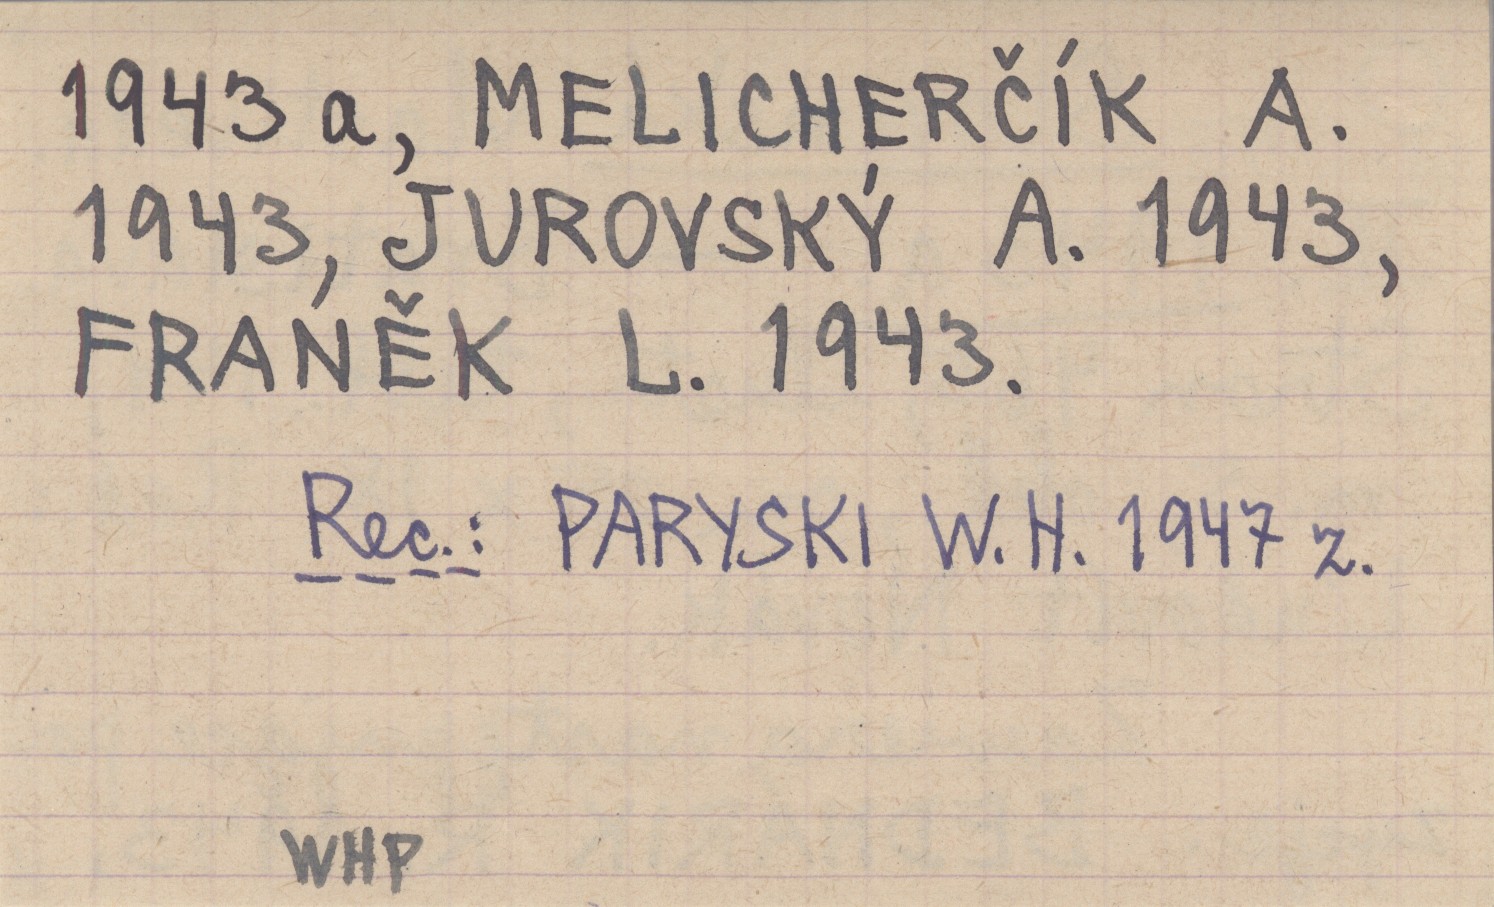 1943 a, MELICHERČÍK A.
1943, JUROVSKÝ A. 1943,
FRANĚK L. 1943.
Rec.: PARYSKI W.H. 1947 z.
WHP